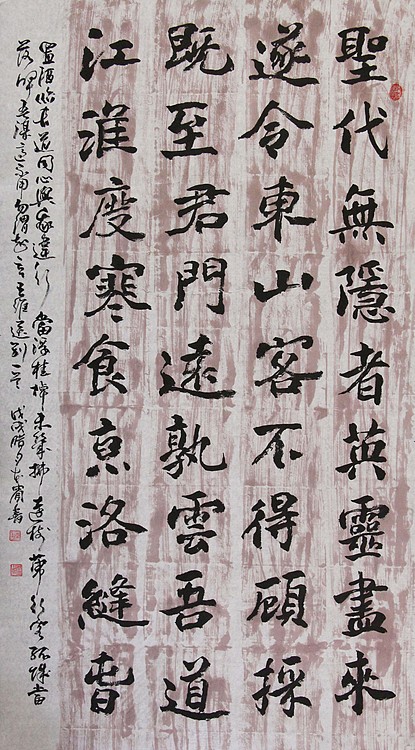 聖代無隱者英靈盡來
遂令東山客不得顧採
既至君門遠孰雲吾道
江淮度寒食京洛縫旾
置酒臨長道同心與我違行當浮桂棹未幾拂遠樹帶行客孤城當
落暉吾謀適不用勿謂知音王維送別一首戊戌臘月書